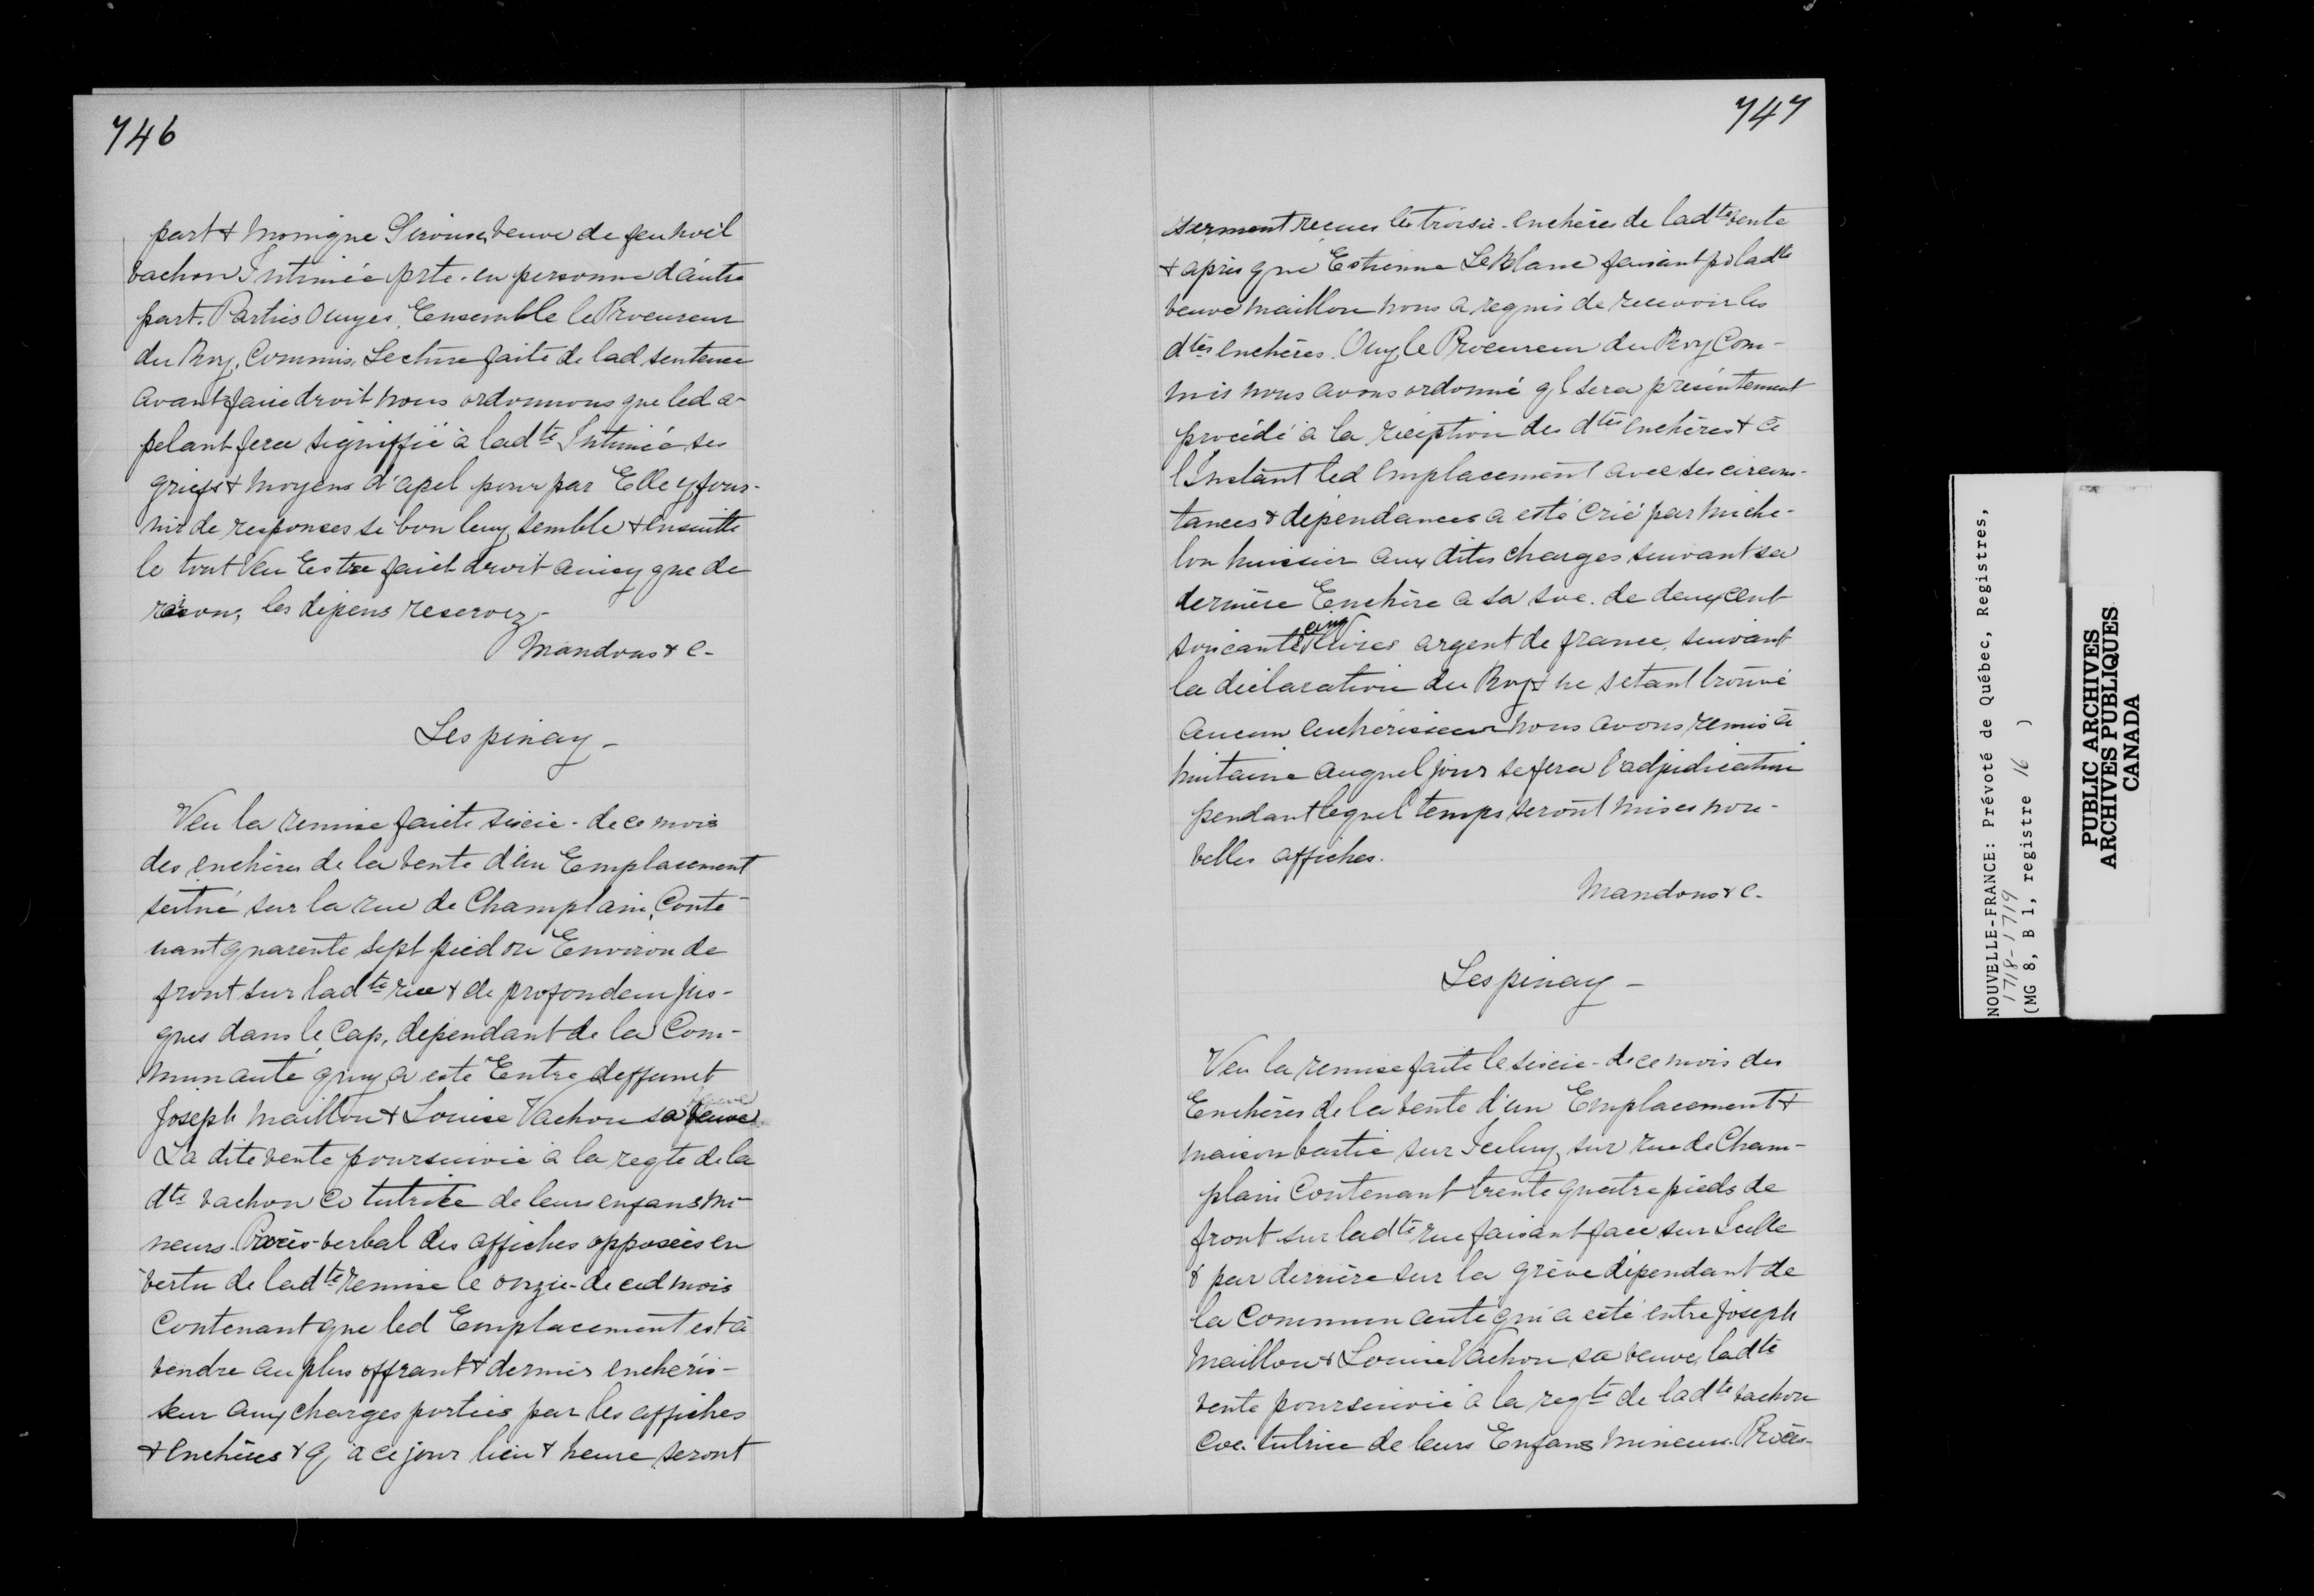 746
part & Monique Girouse, veuve de feu Noël
vachon Intimée prte. en personne d'autre
part. Parties Ouyes, Ensemble le Procureur
du Roy, Commis, Lecture faite de lad sentence
avant faire droit nous ordonnons que led a-
pelant fera signiffié à ladte Intimée ses
griefs & moyens d'apel pour par Elle y four-
nir de responses si bon luy semble & ensuitte
le tout Veu Estre faict droit ainsy que de
raison, les dépens reservez-
Mandons & C-
Lespinay-
Veu la remise faicte sixie- de ce mois
des enchères de la vente d'un Emplacement
scitué sur la rue de Champlain, Conte-
nant quarente sept pied ou Environ de
front sur ladte rue & de profondeur jus-
ques dans le Cap, dependant de la Com-
munauté quy a esté Entre deffunct
Joseph Maillou & Louise Vachon sa veuve
La dite vente poursuivie à la regte de la
dte vachon Co tutrice de leurs enfans mi-
neurs. Procès-verbal des affiches apposées en
vertu de ladte remise le onzie- de cedmois
Contenant que led Emplacement est à
vendre au plus offrant & dernier enchéris-
seur aux charges portées par les affiches
& Enchères & q à ce jour lieu & heure seront
747
serment récues les troisie- enchères de ladte vente
& après que Estienne Leblanc faisant po ladte
veuve Maillou nous a requis de recevoir les
dtes enchères. Ouy le Procureur du Roy Com-
mis nous avons ordonné ql sera présentement
procédé à la réception des dtes enchères & à
l'Instant led Emplacement avec ses circons-
tances & dépendances a esté Crié par Miche-
lon huissier aux dites charges suivant sa
dernière Enchère a la soe. de deux cent
soixante cinq livres argent de france, suivant
la déclaration du Roy & ne s'etant trouvé
aucun enchérisseur nous avons remis à
huitaine auquel jour se fera l'adjudication
pendant lequel temps seront mises nou-
velles affiches.
Mandons & C-
Lespinay-
Veu la remise faite le sixie- de ce mois des
Enchères de la vente d'un Emplacement &
maison bastie sur Iceluy, sur rue de Cham-
plain Contenant trente quatre pieds de
front sur ladte rue faisant face sur Icelle
& par derrière sur la grève dépendant de
la Communauté qui a esté entre Joseph
Maillou & Louise Vachon sa veuve, ladte
vente poursuivie à la regte de ladte vachon
Coe. tutrice de leurs Enfans mineurs. Procès-
NOUVELLE-FRANCE: Prévoté de Québec, Registres,
1718-1719
(MG 8, B 1, registre 16 )
PUBLIC ARCHIVES
ARCHIVES PUBLIQUES
CANADA